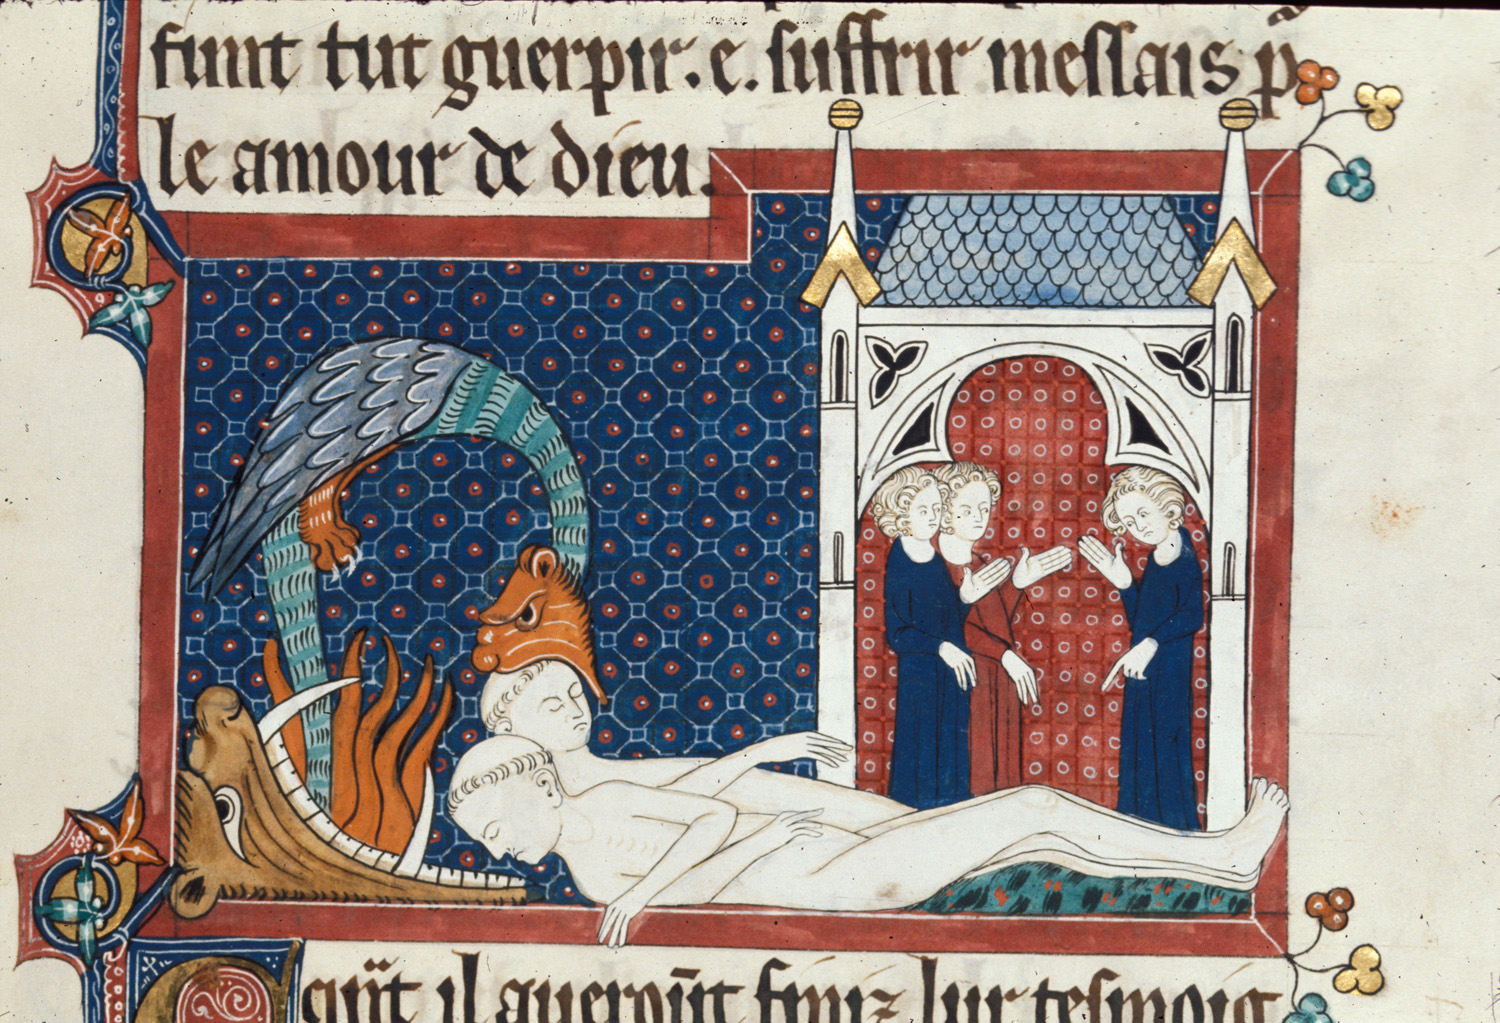 funt tut guerpir. e. suffrir mesſais p̲
le amour de dieu.
q̃nt il auerount finiz lur tesmoig